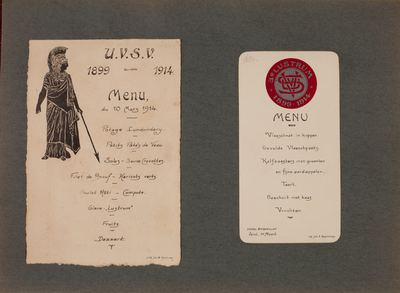 U.V.S.V.
1899 1914.
Menu,
du 10 Mars 1914.
Potage Londonderry.
Petits Patés de Veau.
Soles - Sauce Crevettes.
Filet de Boeuf - Haricots verts.
Poulet Rôti - Compote.
Glace "Lustrum"
Fruits.
Dessert.
3e LUSTRUM
1899 - 1914
MENU
Vleeschnat in kopjes.
Gevulde Vleeschpastij.
Kalfsoesters met groenten
en fijne aardappelen.
Taart.
Beschuit met kaas
Vruchten